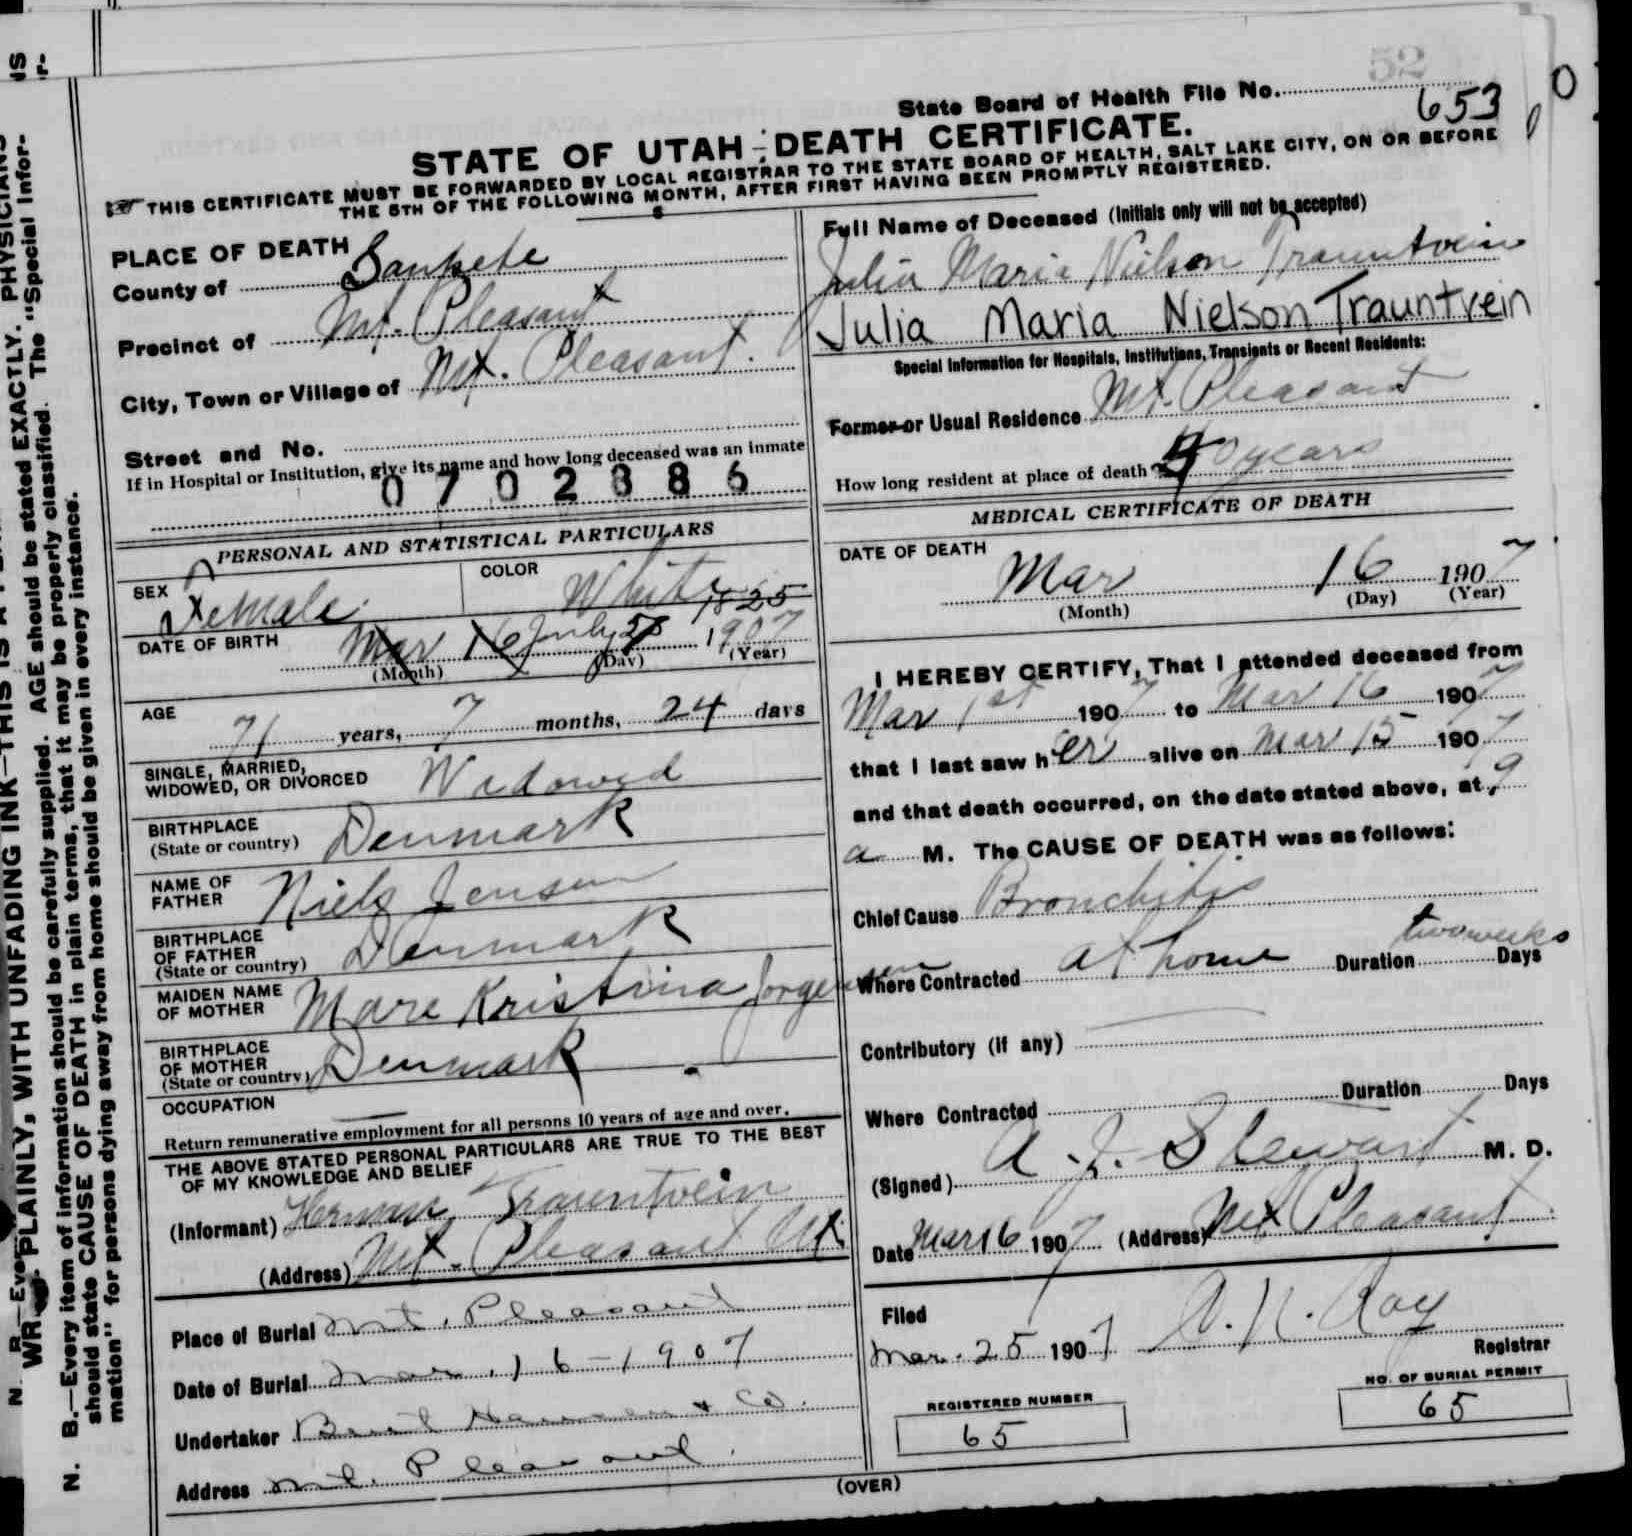 52
State Board of Health File No. 653
STATE OF UTAH - DEATH CERTIFICATE.
THIS CERTIFICATE MUST BE FORWARDED BY LOCAL REGISTRAR TO THE STATE BOARD OF HEALTH, SALT LAKE CITY, ON OR BEFORE
THE 5TH OF THE FOLLOWING MONTH, AFTER FIRST HAVING BEEN PROMPTLY REGISTERED.
PLACE OF DEATH
County of Sanpete
Precinct of Mt. Pleasant
City, Town or Village of Mt. Pleasant.
Street and No.
If in Hospital or Institution, give its name and how long deceased was an inmate
0702886
PERSONAL AND STATISTICAL PARTICULARS
SEX Female
COLOR White
1825
DATE OF BIRTH Mar 16 July 23 1907
(Month) (Day) (Year)
AGE 71 years, 7 months, 24 days
SINGLE, MARRIED,
WIDOWED, OR DIVORCED Widowed
BIRTHPLACE
(State or country) Denmark
NAME OF
FATHER Niels Jensen
BIRTHPLACE
OF FATHER
(State or country) Denmark
MAIDEN NAME
OF MOTHER Mare Kristina Jorgensen
BIRTHPLACE
OF MOTHER
(State or country) Denmark
OCCUPATION
Return remunerative employment for all persons 10 years of age and over.
THE ABOVE STATED PERSONAL PARTICULARS ARE TRUE TO THE BEST
OF MY KNOWLEDGE AND BELIEF
(Informant) Herman Trauntvein
(Address) Mt. Pleasant Ut.
Place of Burial Mt. Pleasant
Date of Burial Mar. 16-1907
Undertaker Hansen & Co.
Address Mt. Pleasant.
Full Name of Deceased (Initials only will not be accepted)
Julia Maria Nielson Trauntvein
Julia Maria Nielson Trauntvein
Special Information for Hospitals, Institutions, Transients or Recent Residents:
Former or Usual Residence Mt. Pleasant
How long resident at place of death 40 years
MEDICAL CERTIFICATE OF DEATH
DATE OF DEATH
Mar 16 1907
(Month) (Day) (Year)
I HEREBY CERTIFY, That I attended deceased from
Mar 1st 1907 to Mar 16 1907
that I last saw her alive on Mar 15 1907
and that death occurred, on the date stated above, at 9
a M. The CAUSE OF DEATH was as follows:
Chief Cause Bronchitis
Where Contracted at home Duration two weeks Days
Contributory (if any)
Where Contracted Duration Days
(Signed) A. J. Stewart M. D.
Date Mar 16 1907 (Address) Mt Pleasant
Filed
Mar. 25 1907 Registrar
REGISTERED NUMBER
65
NO. OF BURIAL PERMIT
65
(OVER)
N. B.—Every item of information should be carefully supplied. AGE should be stated EXACTLY. PHYSICIANS
should state CAUSE OF DEATH in plain terms, that it may be properly classified. The "Special Infor-
mation" for persons dying away from home should be given in every instance.
PLAINLY, WITH UNFADING INK—THIS IS A